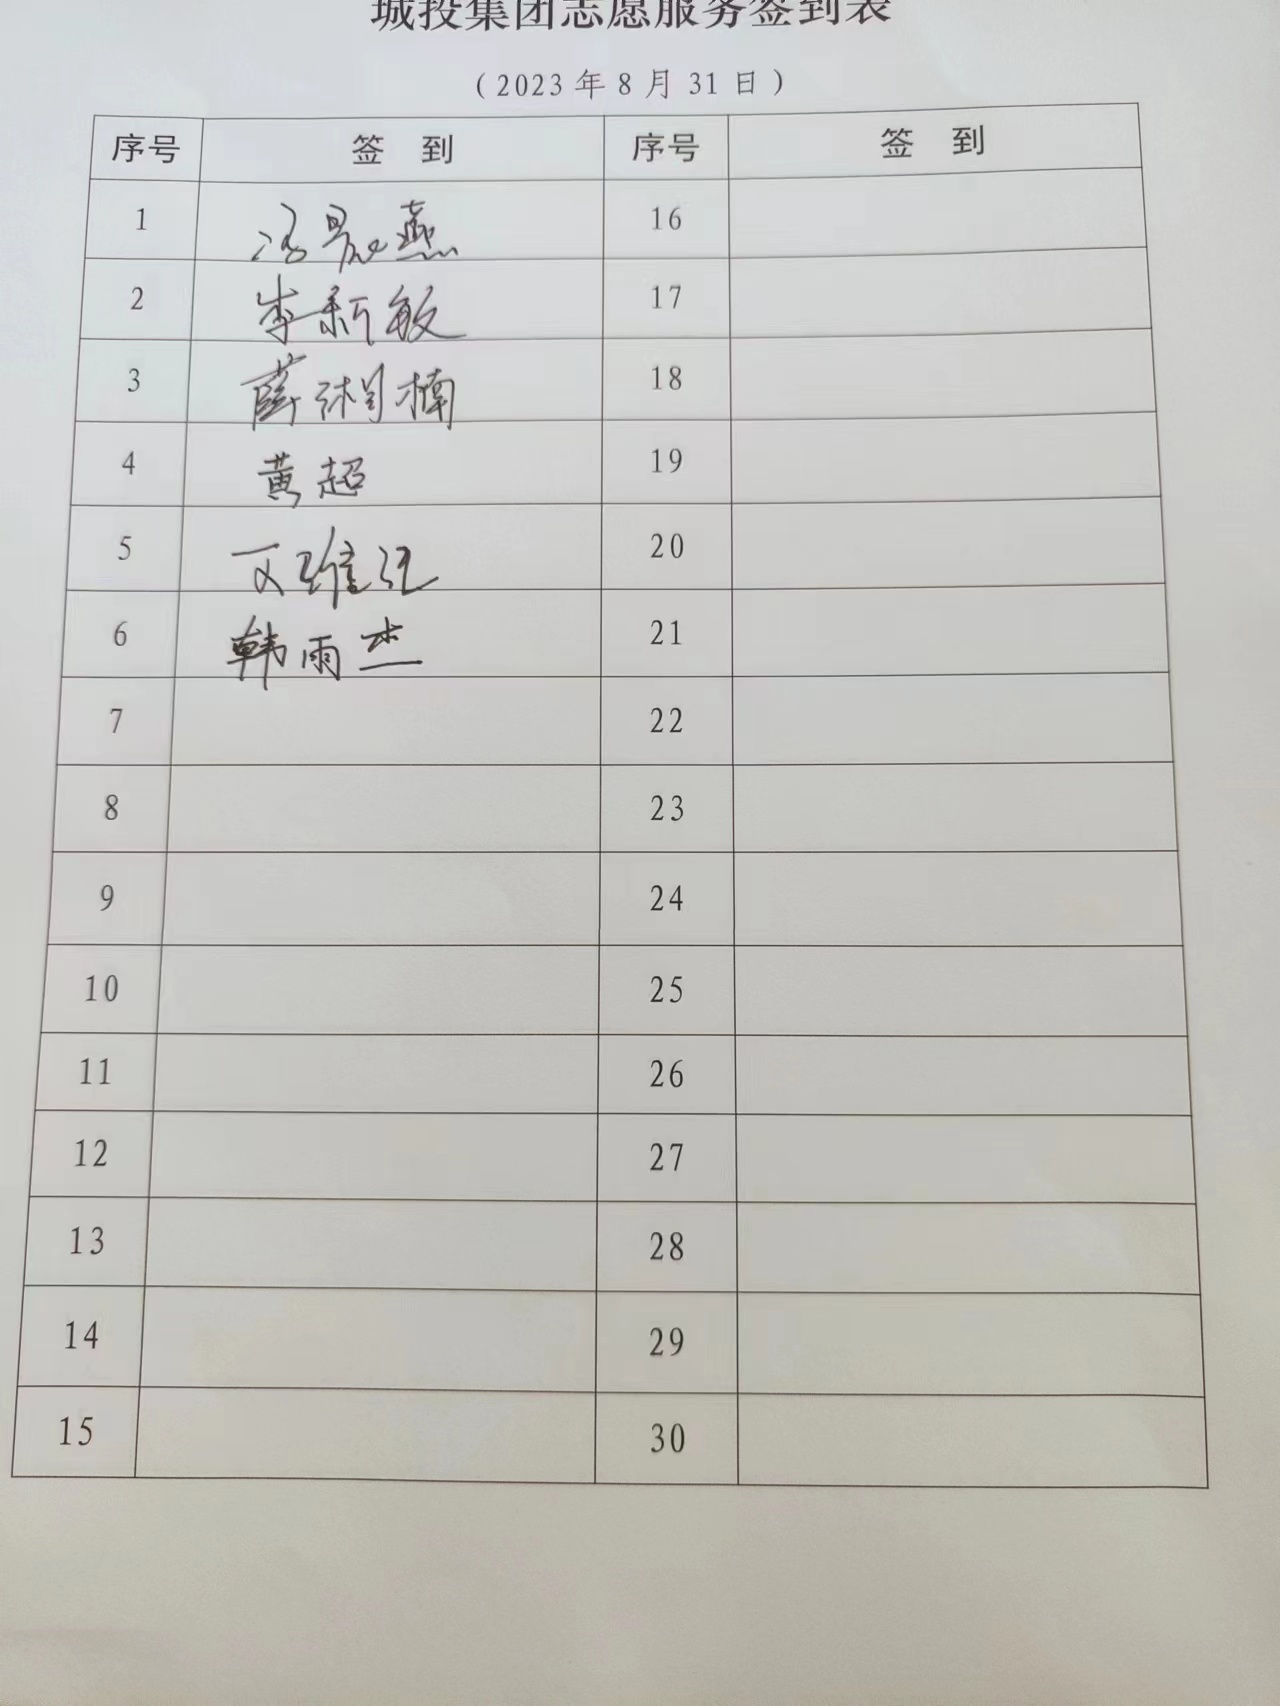 城投集团志愿服务签到表
（2023年8月31日）
序号 签到 序号 签到
1 冯晨燕 16
2 李新敏 17
3 薛湘楠 18
4 黄超 19
5 维 20
6 韩雨杰 21
7 22
8 23
9 24
10 25
11 26
12 27
13 28
14 29
15 30